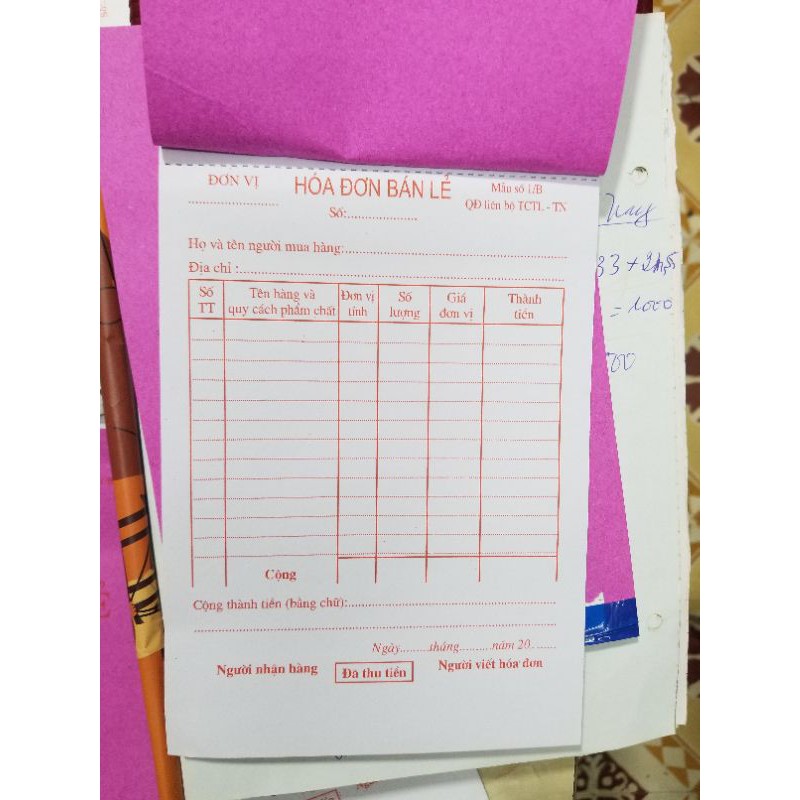 ĐƠN VỊ HÓA ĐƠN BÁN LẺ Mẫu số 1/B
.................... Số:................... QĐ liên bộ TCTL - TN
Họ và tên người mua hàng:............................................................
Địa chỉ :.......................................................................................
Số TT Tên hàng và quy cách phẩm chất Đơn vị tính Số lượng Giá đơn vị Thành tiền
Cộng
Cộng thành tiền (bằng chữ):........................................................
.......................................................................................................
Ngày........tháng.........năm 20.......
Người nhận hàng Đã thu tiền Người viết hóa đơn
33 + 2
= 1000
00